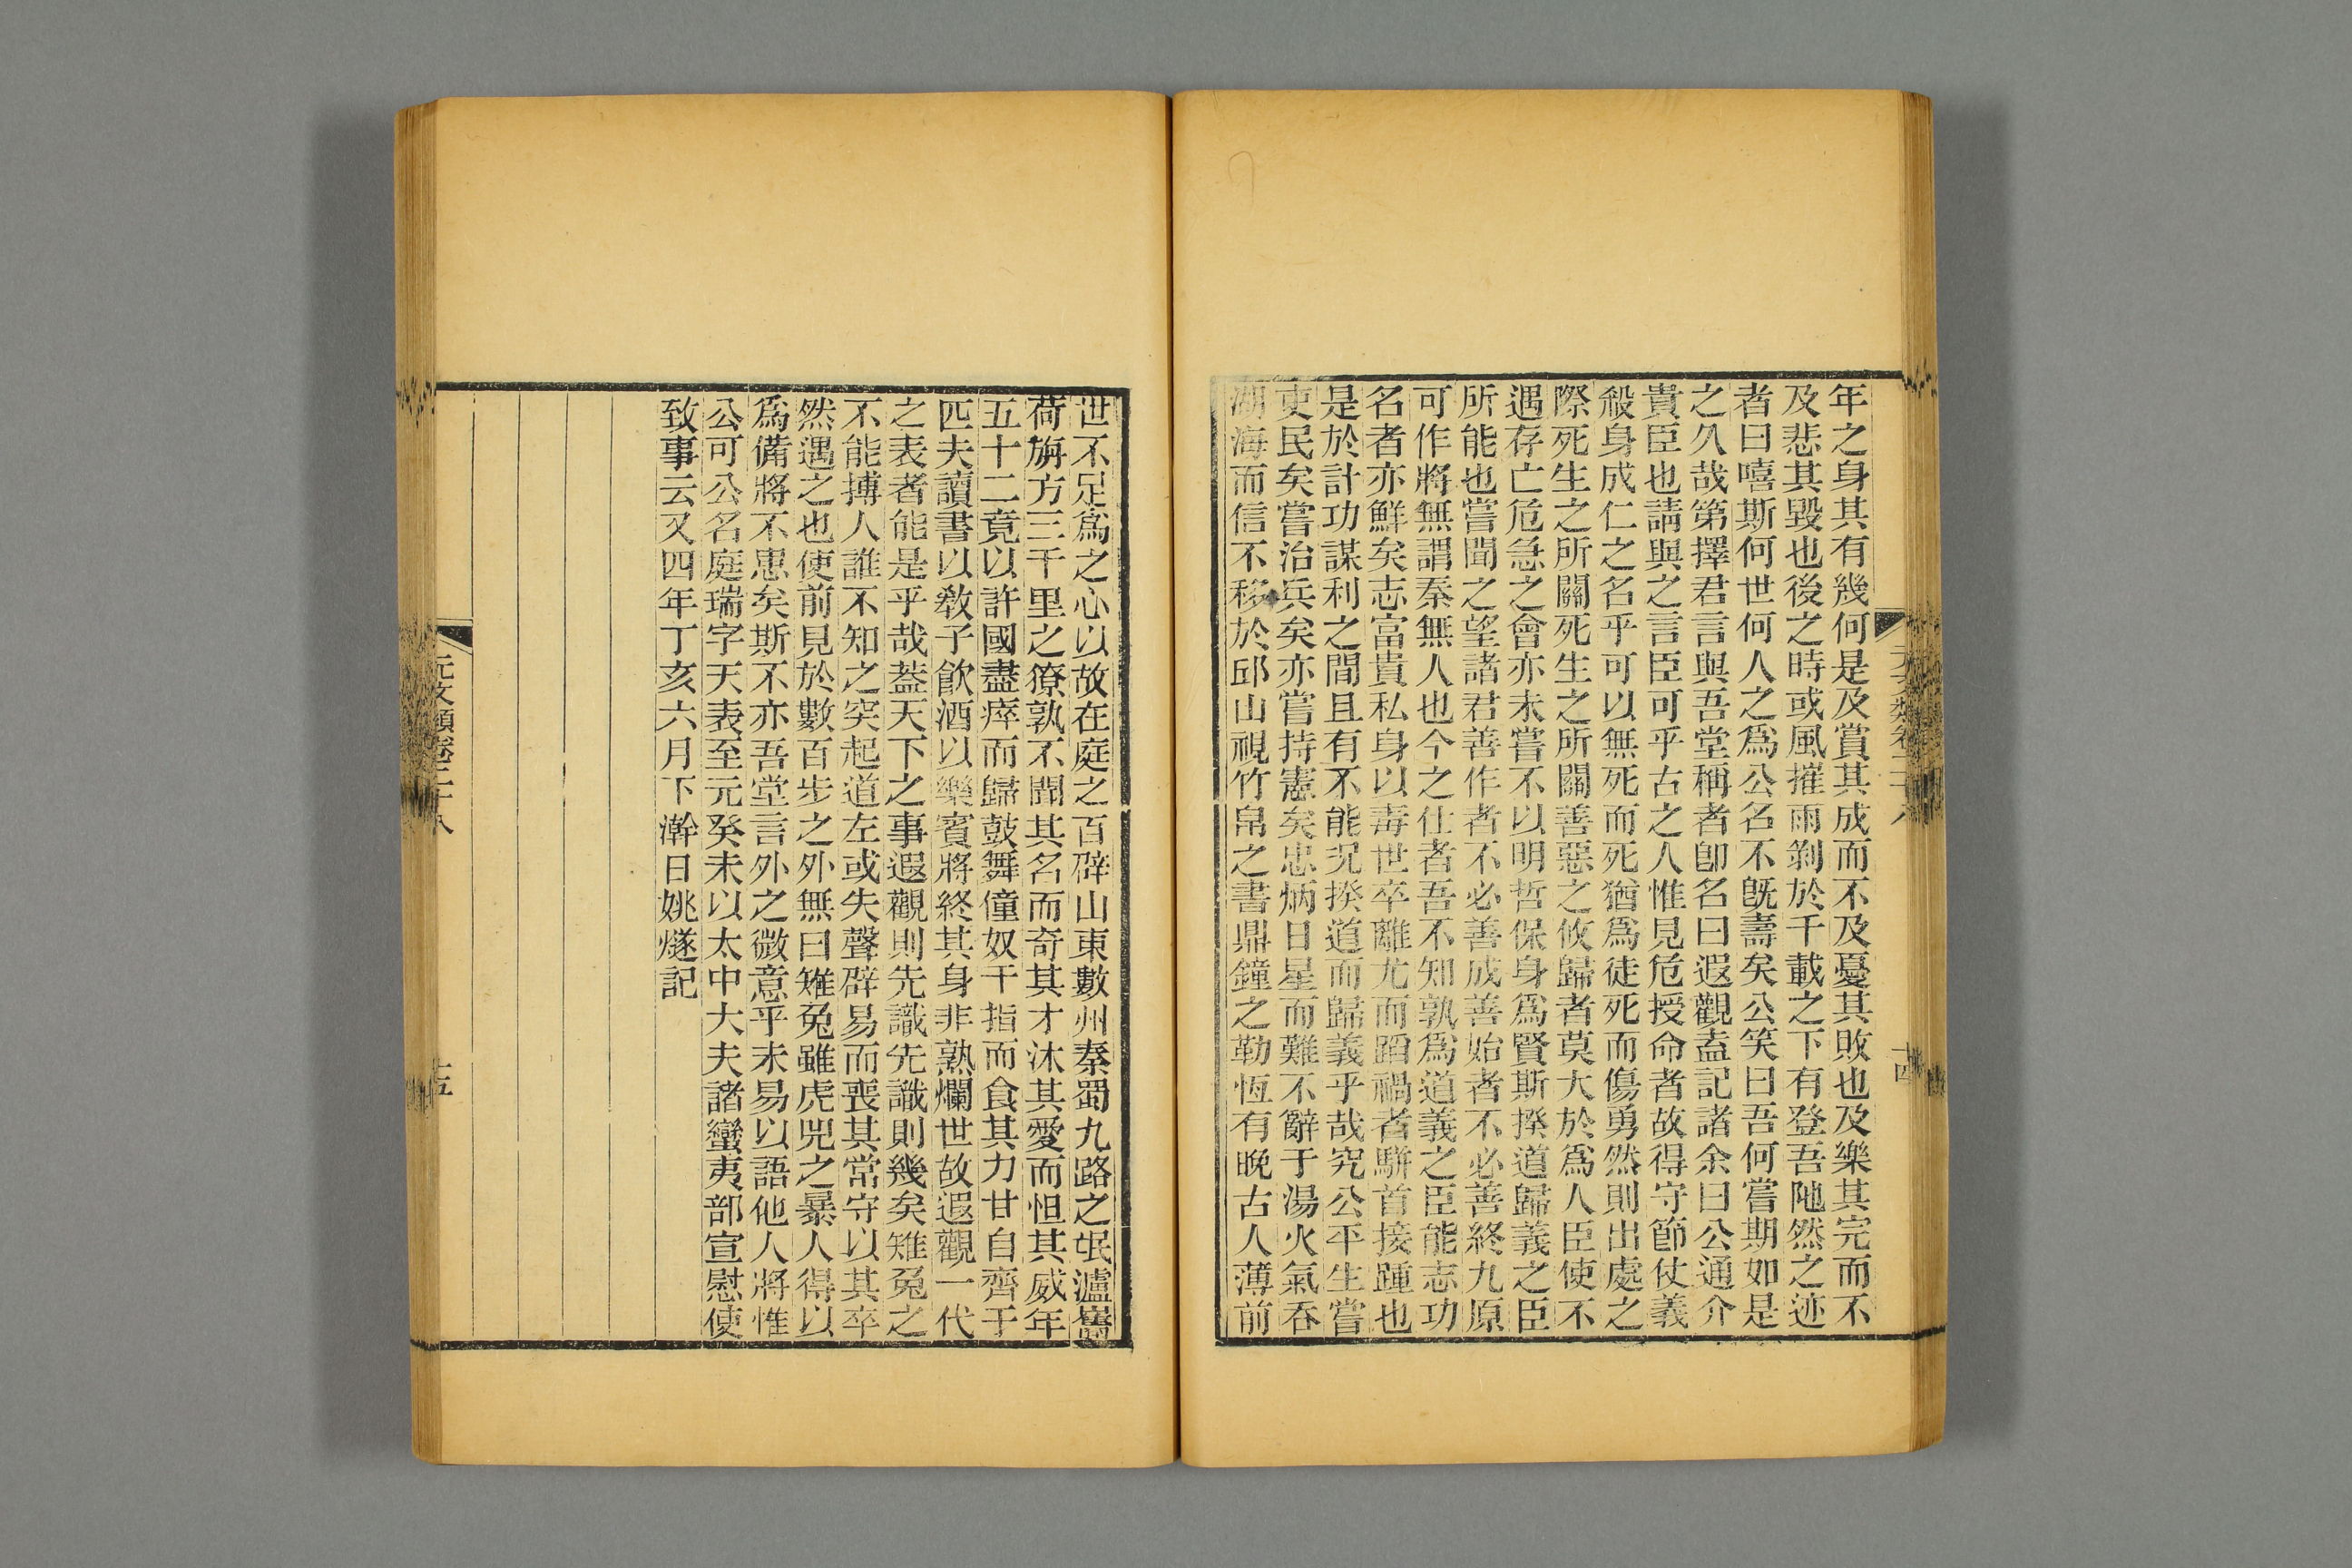 年之身其有幾何是及賞其成而不及憂其敗也及樂其完而不
及悲其毀也後之時或風摧雨剝於千載之下有登吾阤然之迹
者曰嘻斯何世何人之爲公名不旣壽矣公笑曰吾何嘗期如是
之久哉第擇君言與吾堂稱者卽名曰遐觀盍記諸余曰公通介
貴臣也請與之言臣可乎古之人惟見危授命者故得守節仗義
殺身成仁之名乎可以無死而死猶爲徒死而傷勇然則出處之
際死生之所關死生之所關善惡之攸歸者莫大於爲人臣使不
遇存亡危急之會亦未嘗不以明哲保身爲賢斯揆道歸義之臣
所能也嘗聞之望諸君善作者不必善成善始者不必善終九原
可作將無謂秦無人也今之仕者吾不知孰爲道義之臣能志功
名者亦鮮矣志富貴私身以毒世卒離尤而蹈禍者駢首接踵也
是於計功謀利之間且有不能況揆道而歸義乎哉究公平生嘗
吏民矣嘗治兵矣亦嘗持憲矣忠炳日星而難不辭于湯火氣吞
湖海而信不移於邱山視竹帛之書鼎鐘之勒恆有晚古人薄前
十四
世不足爲之心以故在庭之百辟山東數州秦蜀九路之氓瀘巂
荷旃方三千里之獠孰不聞其名而奇其才沐其愛而怛其威年
五十二竟以許國盡瘁而歸鼓舞僮奴千指而食其力甘自齊于
匹夫讀書以敎子飮酒以樂賓將終其身非熟爛世故遐觀一代
之表者能是乎哉蓋天下之事遐觀則先識先識則幾矣雉兔之
不能搏人誰不知之突起道左或失聲辟易而喪其常守以其卒
然遇之也使前見於數百步之外無曰雉兔雖虎兕之暴人得以
爲備將不患矣斯不亦吾堂言外之微意乎未易以語他人將惟
公可公名庭瑞字天表至元癸未以太中大夫諸蠻夷部宣慰使
致事云又四年丁亥六月下澣日姚燧記
元文類卷二十八
十五